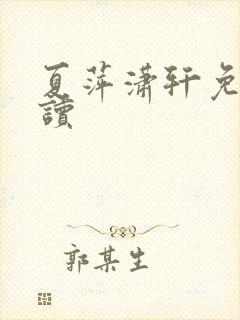 夏萍潇轩免
读
郭某生